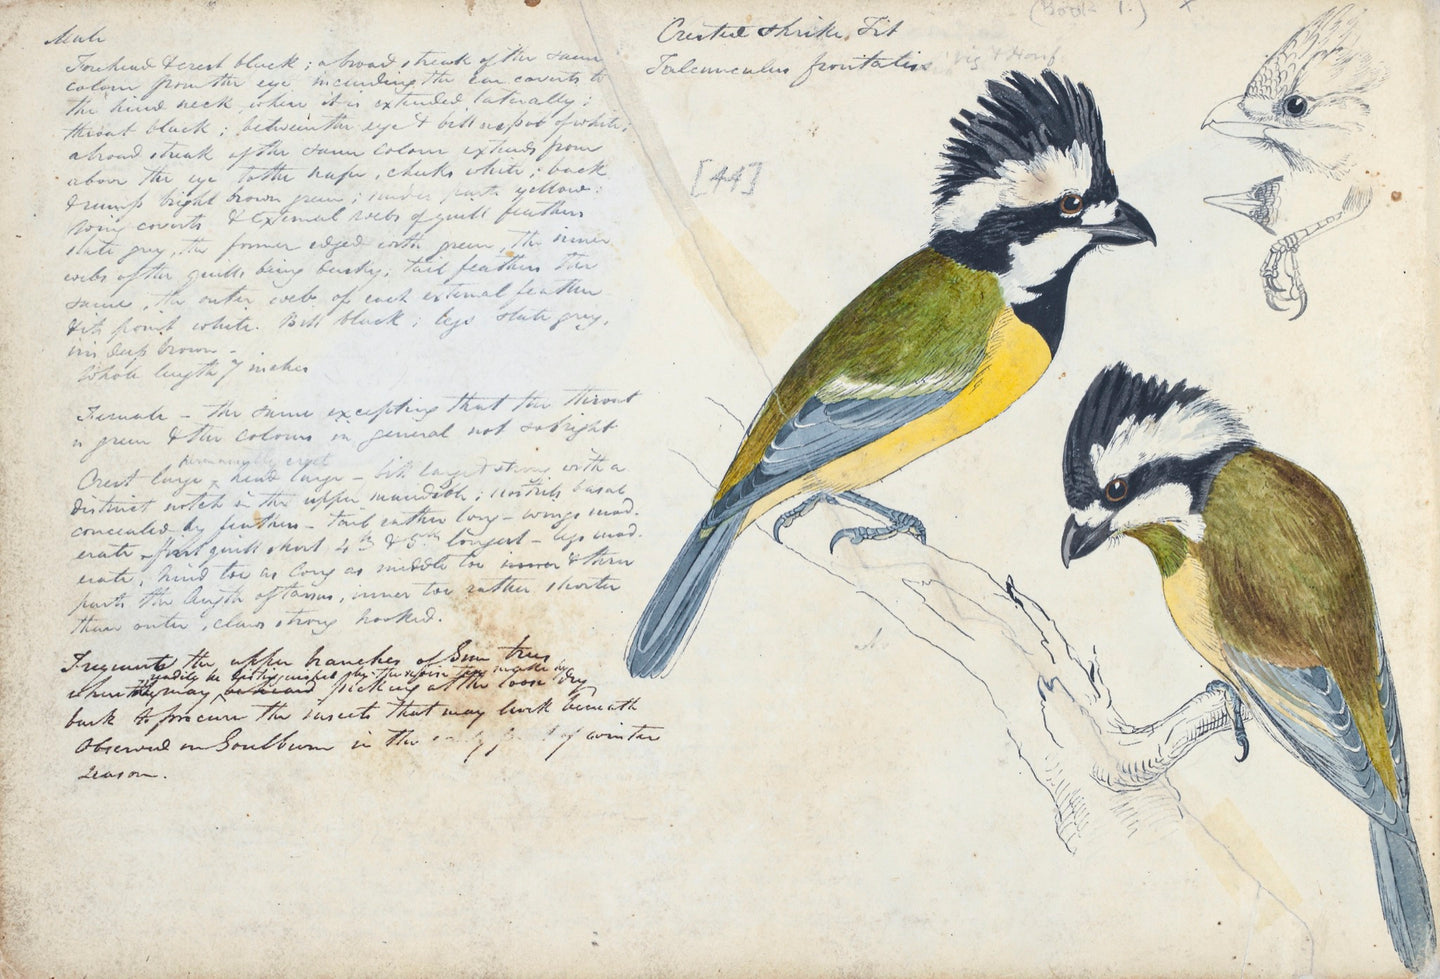 (Book 1.) x
Crested Shrike Tit
Falcunculus frontatis Vig & Horsf
[44]
Male
Forehead & crest black; a broad streak of the same
colour from the eye including the ear coverts to
the hind neck where it is extended laterally;
throat black; between the eye & bill a spot of white;
a broad streak of the same colour extends from
above the eye to the nape, cheeks white; back
& rump bright brown green; under parts yellow;
wing coverts & external webs of quill feathers
slate grey, the former edged with green, the inner
webs of the quills being dusky; tail feathers the
same, the outer web of each external feather
& its point white. Bill black; legs slate grey,
iris deep brown -
Whole length 7 inches
Female - the same excepting that the throat
is green & the colours in general not so bright
permanently erect
Crest large x head large - bill large & strong with a
distinct notch in the upper mandible; nostrils basal
concealed by feathers - tail rather long - wings mod-
erate - first quill short 4th & 5th longest - legs mod-
erate, hind toe as long as middle toe inner & three
parts the length of tarsus, inner toe rather shorter
than outer, claws strong hooked.
Frequents the upper branches of Gum trees
readily be distinguished by the noise they make in
where they may be heard picking at the loose dry
bark to procure the insects that may lurk beneath
Observed on Goulburn in the early part of winter
season.